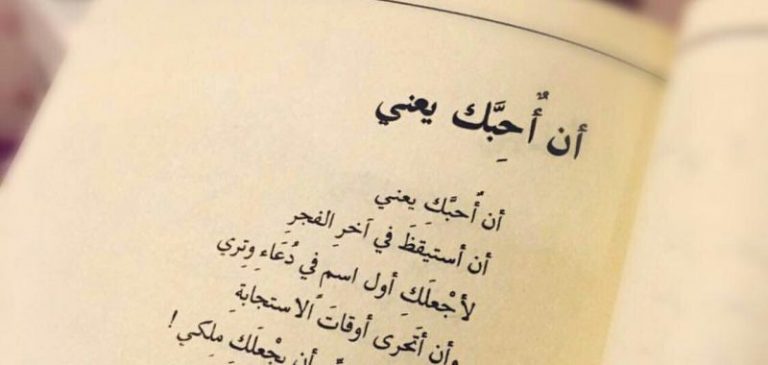 أن أُحِبَّك يعني
أن أُحبَّكِ يعني
أن أستيقظَ في آخرِ الفجرِ
لأجْعلَكِ أول اسم في دُعَاءِ وِترِي
وأن أتَحرى أوقاتَ الاستجابةِ
أن يجْعلَكِ ملكي!